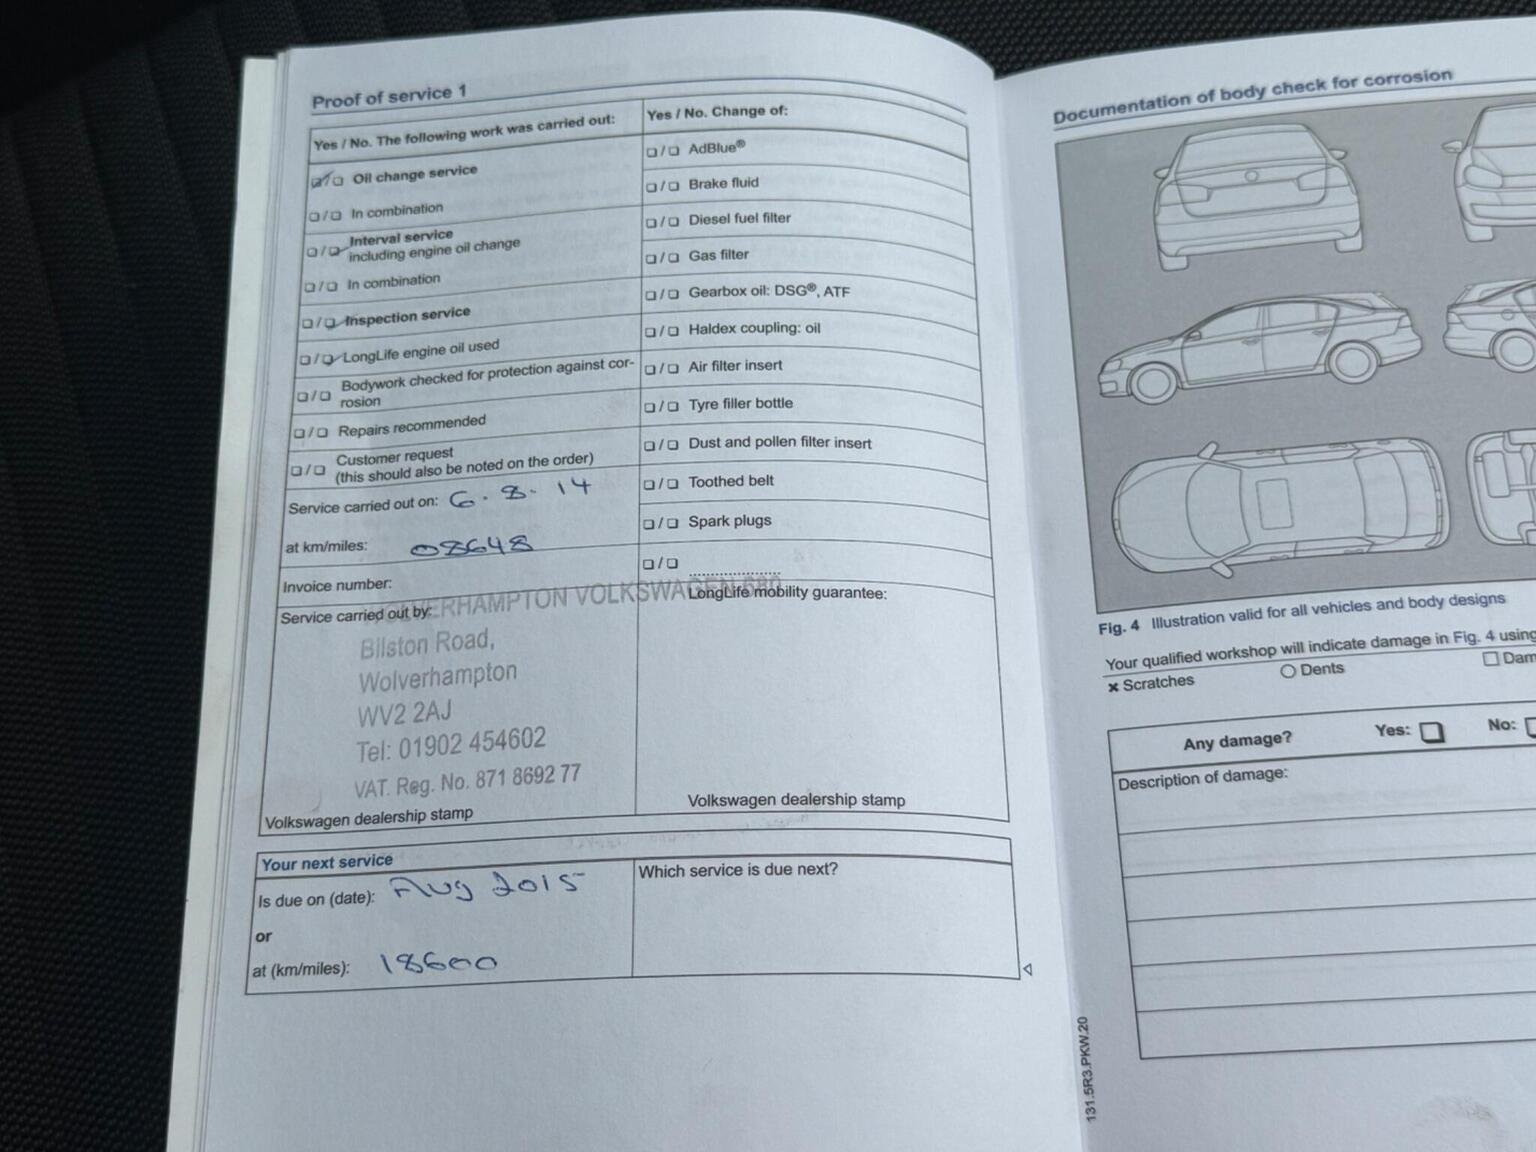 Proof of service 1
Yes / No. The following work was carried out:
❏ / ❏ Oil change service
❏ / ❏ In combination
❏ / ❏ Interval service
including engine oil change
❏ / ❏ In combination
❏ / ❏ Inspection service
❏ / ❏ LongLife engine oil used
❏ / ❏ Bodywork checked for protection against cor-
rosion
❏ / ❏ Repairs recommended
❏ / ❏ Customer request
(this should also be noted on the order)
Service carried out on: 6.8.14
at km/miles: 08648
Invoice number:
Service carried out by:
WOLVERHAMPTON VOLKSWAGEN 680
Bilston Road,
Wolverhampton
WV2 2AJ
Tel: 01902 454602
VAT. Reg. No. 871 8692 77
Volkswagen dealership stamp
Yes / No. Change of:
❏ / ❏ AdBlue®
❏ / ❏ Brake fluid
❏ / ❏ Diesel fuel filter
❏ / ❏ Gas filter
❏ / ❏ Gearbox oil: DSG®, ATF
❏ / ❏ Haldex coupling: oil
❏ / ❏ Air filter insert
❏ / ❏ Tyre filler bottle
❏ / ❏ Dust and pollen filter insert
❏ / ❏ Toothed belt
❏ / ❏ Spark plugs
❏ / ❏ ....................
LongLife mobility guarantee:
Volkswagen dealership stamp
Your next service
Is due on (date): Aug 2015
or
at (km/miles): 18600
Which service is due next?
Documentation of body check for corrosion
Fig. 4 Illustration valid for all vehicles and body designs
Your qualified workshop will indicate damage in Fig. 4 using
× Scratches
○ Dents
□
Any damage? Yes: ❏ No: ❏
Description of damage:
131.5R3.PKW.20